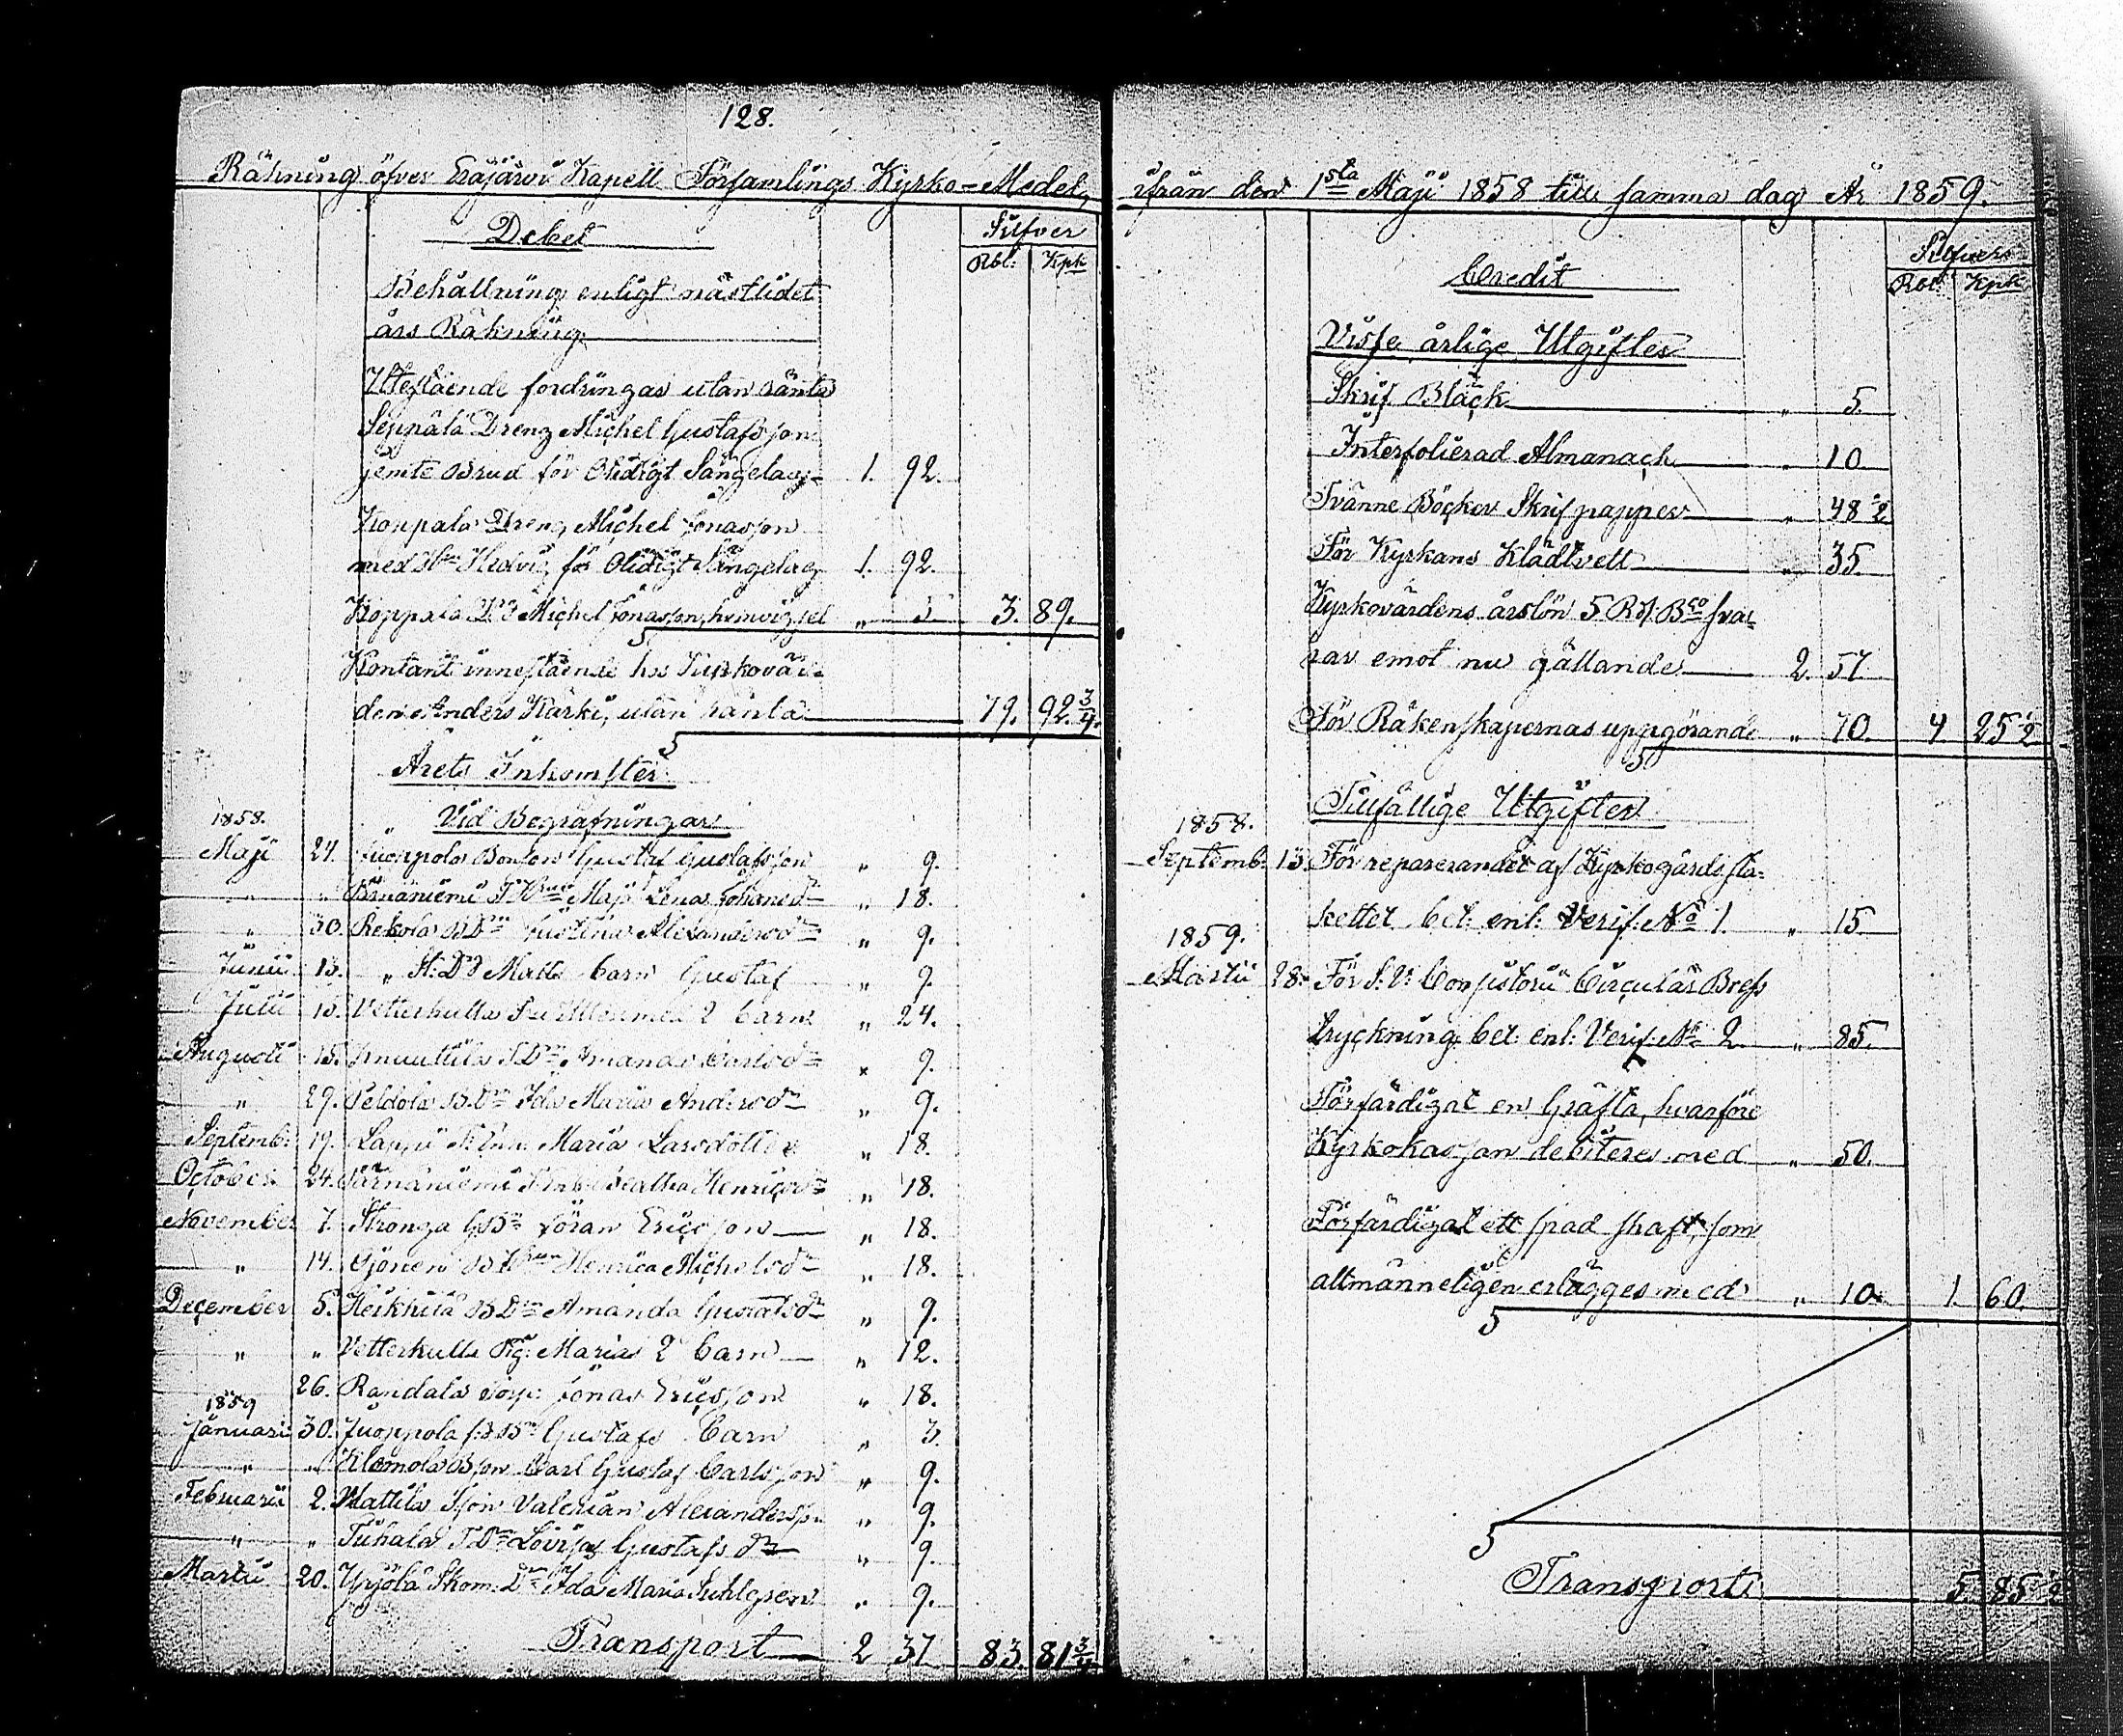 128.
Räkning öfver Eräjärvi Kapell Församlings Kyrko-Medel,
Debet
Silfver
Rbl: Kpk
Behållning enligt nästlidet
års Räkning
Utestående fordringar utan ränta
Seppälä Dreng Michel Gustafsson
jemte Brud för Otidigt Sängelag 1. 92.
Koppala Dreng Michel Jonasson
med H:n Hedvig för Otidigt Sängelag 1. 92.
Koppala D:g Michel Jonasson hemvigsel " 5 3. 89.
Kontant innestående hos Kyrkovär-
den Anders Kärki, utan ränta 79. 92 3/4.
Årets Inkomster
Vid Begrafningar
1858.
Maji 24. Juoppola Bonden Gustaf Gustafsson " 9.
" " Maja Lena Johansd:r " 18.
" 30. Rekola B.D:r Justina Alexandersd:r " 9.
Junii 13. " St: D:g Matts barn Gustaf " 9.
Julii 15. Vetterkulla 2 barn " 24.
Augusti 15. S.D:r Amanda Carlsd:r " 9.
" 29. Peldola B.D:r Ida Maria Andersd:r " 9.
Septemb: 19. Lappi Maria Larsdotter " 18.
October 24. Särnäniemi Beatha Henricsd:r " 18.
November 7. Stronga Jöran Ericsson " 18.
" 14. Henrica Michelsd:r " 18.
December 5. Heikkilä B.D:r Amanda Gustafsd:r " 9.
" " Vetterkulla Pig: Maria 2 barn " 12.
26. Randala Torp: Jonas Ericsson " 18.
1859
Januarii 30. Juoppola Gustafs barn " 3.
" " Klemola Bson Carl Gustaf Carlsson " 9.
Februarii 2. Mattila Sson Valerian Alexanderss: " 9.
" " Tuhala T.D:r Lovisa Gustafs d:r " 9.
Martii 20. Yrjölä Skom: D:r Ida Maria " 9.
Transport 2 37 83. 81 3/4
ifrån den 1sta Maji 1858 till samma dag År 1859.
Credit
Silfver
Rbl: Kpk
Visse årlige Utgifter
Skrif Bläck " 5.
Interfolierad Almanach " 10
Tvänne Böcker Skrifpapper " 48 1/2
För Kyrkans Klädtvett " 35.
Kyrkovärdens årslön 5 Rd: Bco sva-
rar emot nu gällande 2. 57.
För Räkenskapernas uppgörande " 70. 4 25 1/2
Tillfällige Utgifter
1858.
Septemb: 13. För reparerandet af Kyrkogårds sta-
kettet bet: enl: Verif: No 1. " 15
1859.
Martii 28. För S: V: Consistorii Circulär Bref
tryckning bet: enl: Verif: No 2 " 85.
Förfärdigat en Grafta, hvarföre
Kyrkokassan debiteres med " 50.
Förfärdigat ett spad skaft, som
allmänneligen erlägges med " 10. 1. 60.
Transport 5. 85 1/2